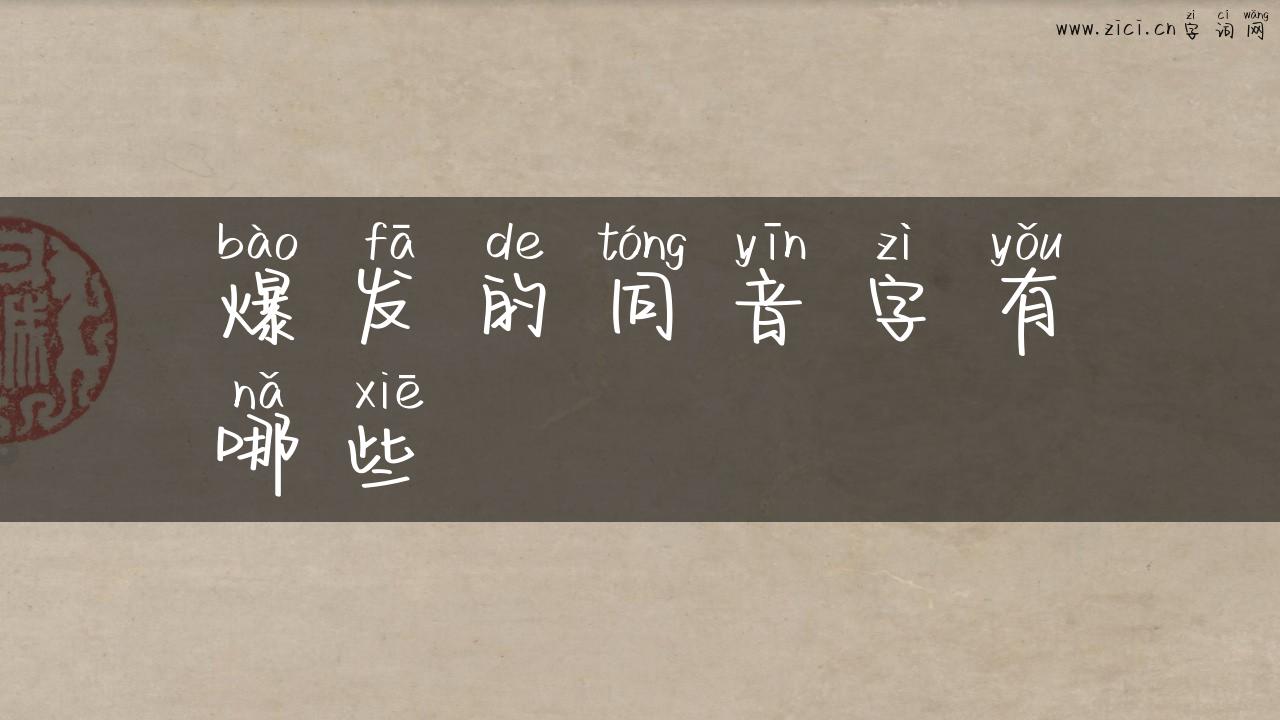 zì cí wǎng
www.zici.cn字词网
bào fā de tóng yīn zì yǒu
爆发的同音字有
nǎ xiē
哪些